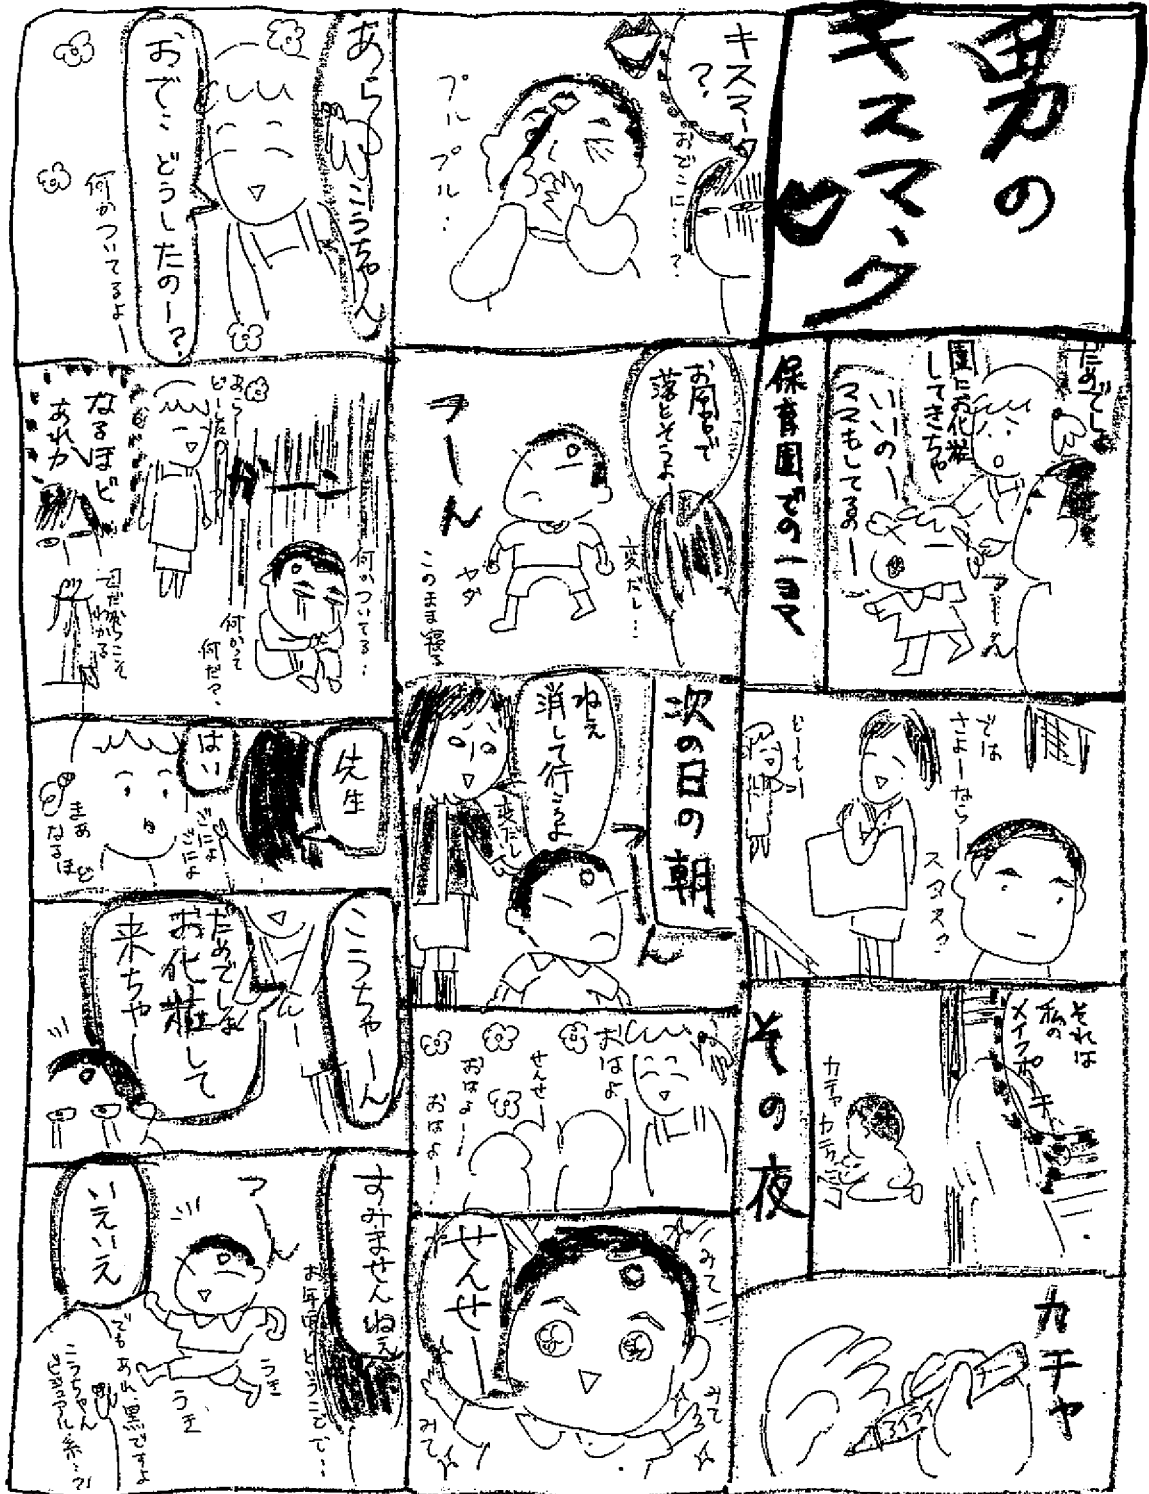 男の
キスマーク
保育園での一コマ
だめでしょ
園にお化粧
してきちゃ
いいのー
ママもしてるのー
アーん
では
さよーならー
スタスタ
じーっ
その夜
それは
私の
メイクポーチ
カチャ
カチャ
カチャ
アイライナー
キスマーク
?
おでこに…?
プル
プル…
お風呂で
落とそうよー
変だし…
ヤーん
ヤダ
このまま寝る
次の日の朝
ねぇ
消して行こうよ
変だし
ヤーん
おはよー
せんせー
おはよー
おはよー
みてー
せんせー
みて
みて
あらーこうちゃん
おでこどうしたのー?
何かついてるよー
ガーン
何かついてる…
何かって
何だ?
あらー
どーしたのー
なるほど
あれか
母だからこそ
わかる
先生
はい
ごにょ
ごにょ
まあ
なるほど
こうちゃーん
だめでしょ
お化粧して
来ちゃー
すみませんねぇ
お年頃というこで…
アーん
ラキ
ラキ
いえいえ
でもあれ、黒ですよ
こうちゃん
ビジュアル系…?!